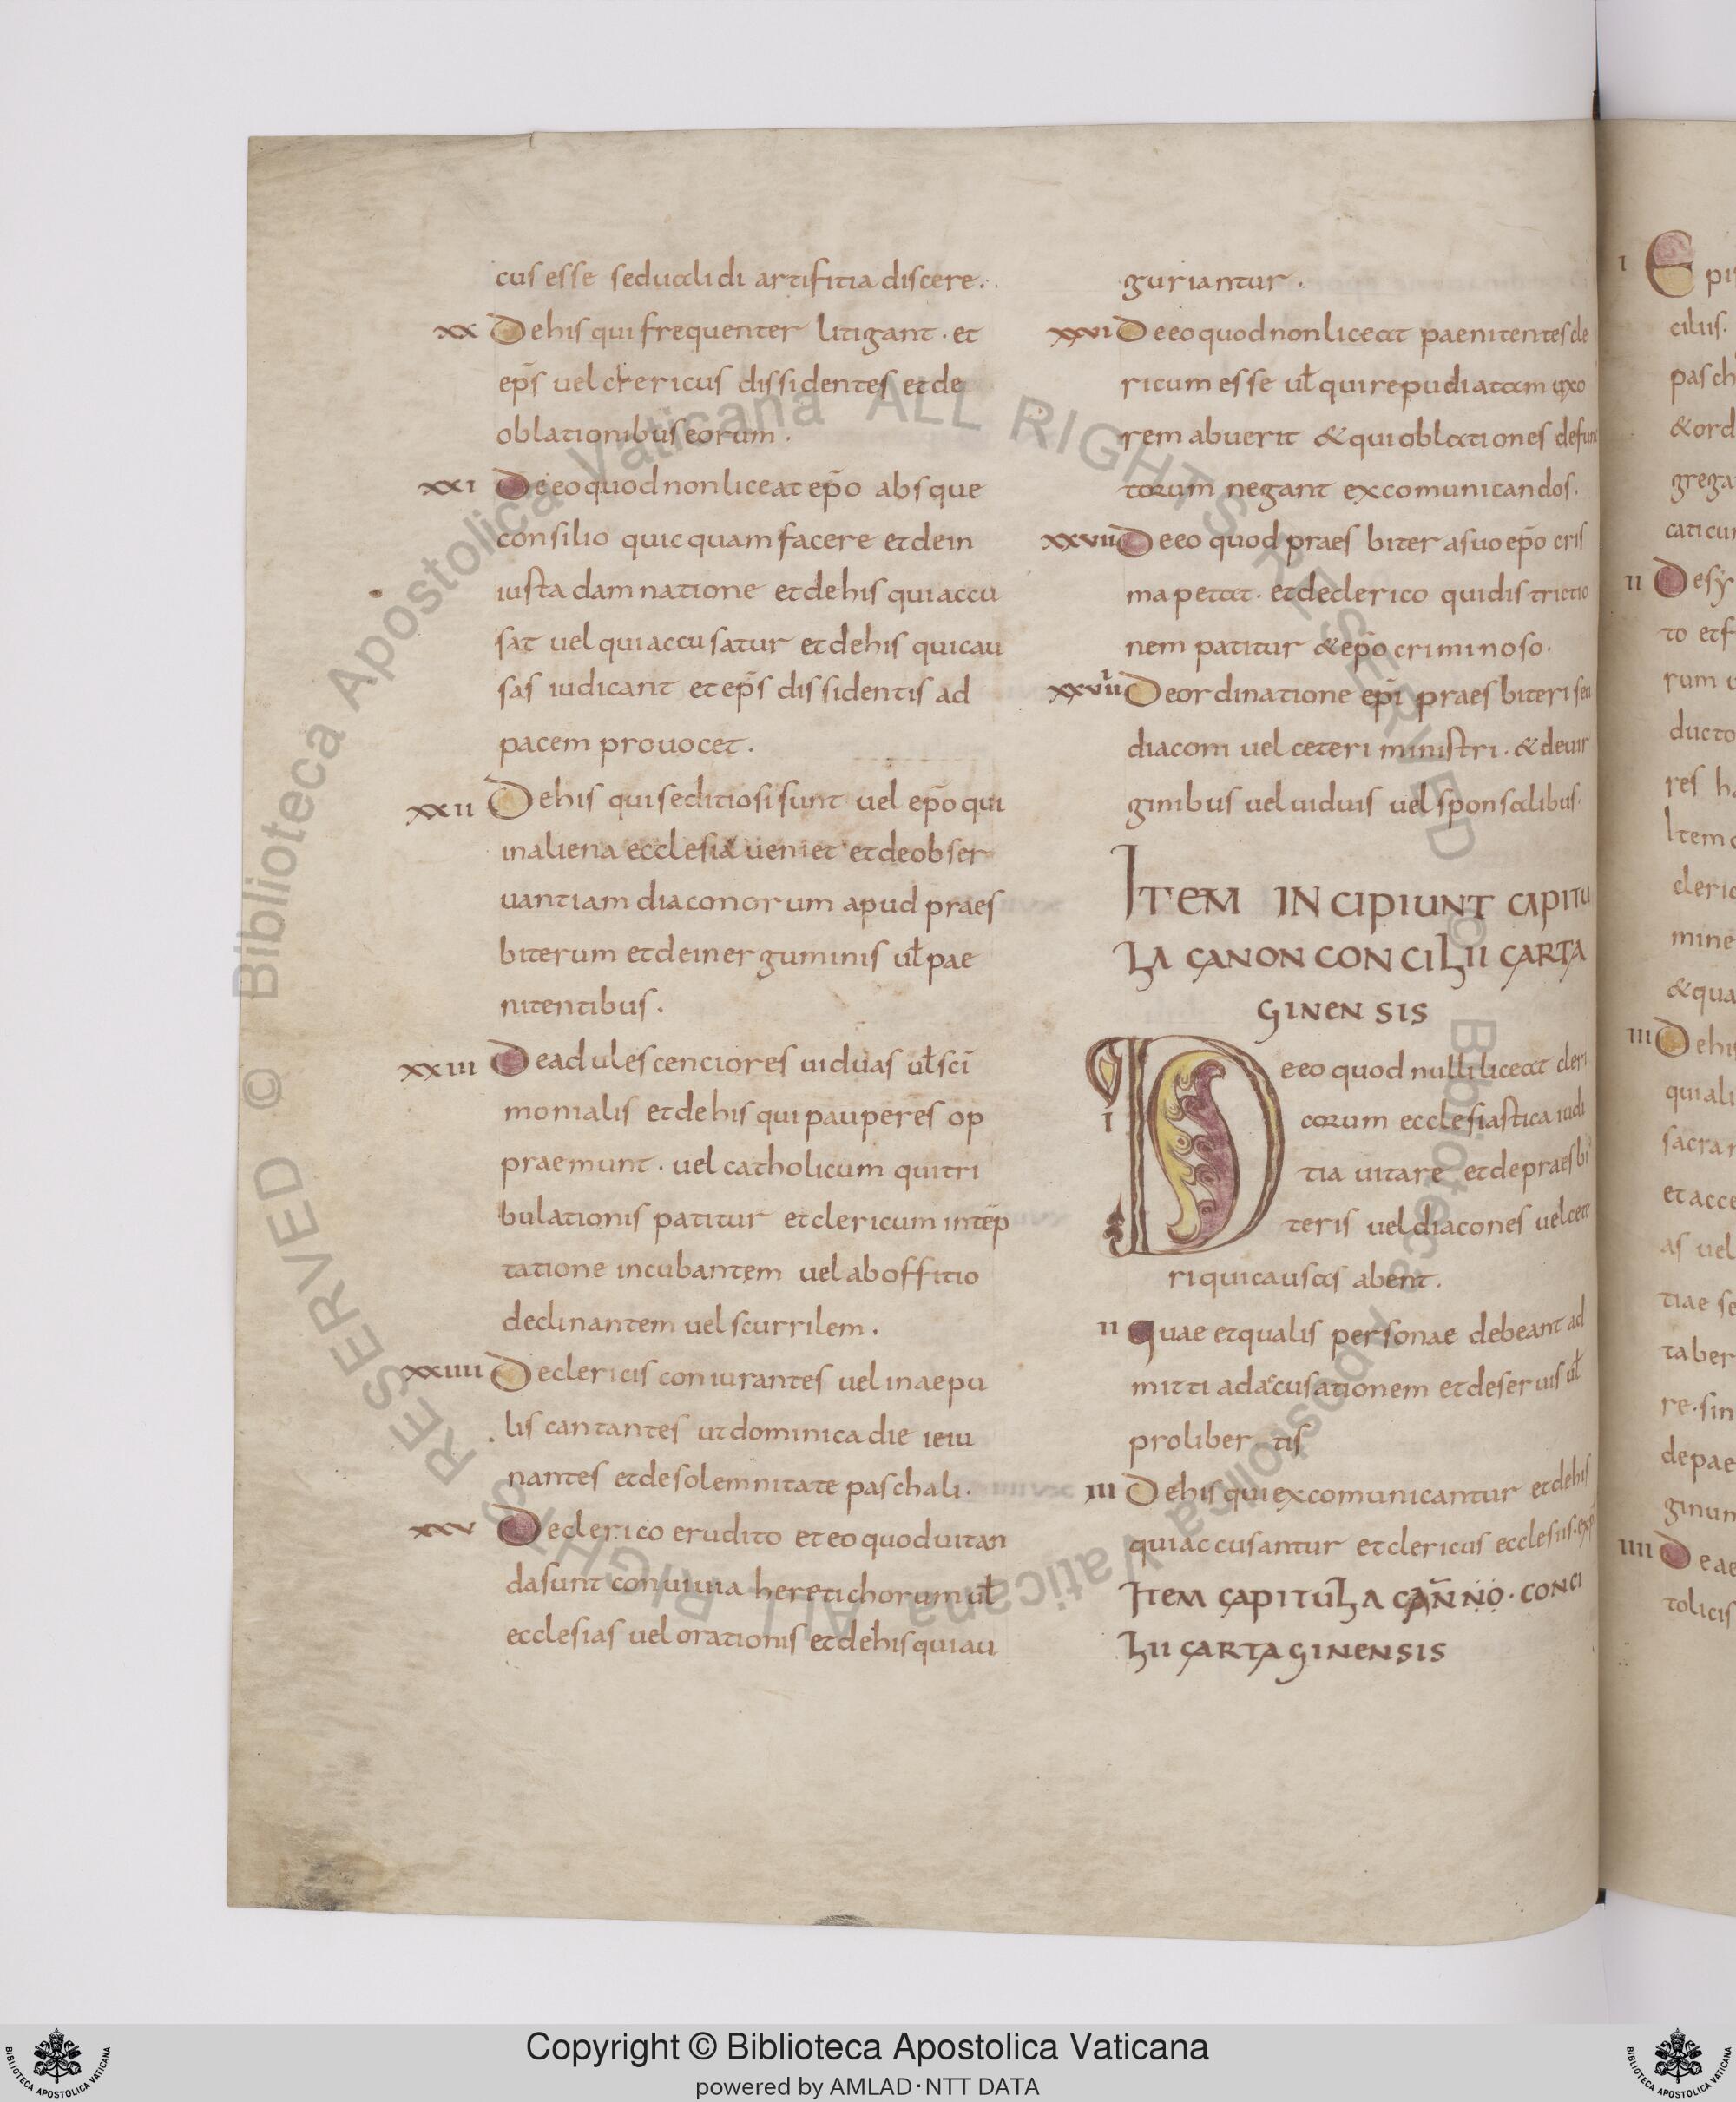 cus esse seduali di artifitia discere.
xx De his qui frequenter litigant. et
ep̄s uel clericus dissidentes et de
oblationibus eorum.
xxi De eo quod non liceat ep̄o absque
consilio quic quam facere et de in
iusta damnatione et de his qui accu
sat uel qui accusatur et de his qui cau
sas iudicant et ep̄s dissidentis ad
pacem prouocet.
xxii De his qui seditiosi sunt uel ep̄o qui
in aliena ecclesia ueniet et de obser
uantiam diaconorum apud praes
biterum et de inerguminis ul̄ pae
nitentibus.
xxiii De adulescenciores uiduas ul̄ sci̅
monialis et de his qui pauperes op
praemunt. uel catholicum qui tri
bulationis patitur et clericum in te̅p
tatione incubantem uel ab offitio
declinantem uel scurrilem.
xxiiii De clericis coniurantes uel in aepu
lis cantantes ut dominica die ieiu
nantes et de solemnitate paschali.
xxv De clerico erudito et eo quod uitan
da sunt conuiuia heretichorum ul̄
ecclesias uel orationis et de his qui au
guriantur.
xxvi De eo quod non liceat paenitentes cle
ricum esse ul̄ qui repudiatam uxo
rem abuerit & qui oblationes defunc
torum negant excomunicandos.
xxvii De eo quod praesbiter a suo ep̄o cris
ma petat. et de clerico qui districtio
nem patitur & ep̄o criminoso.
xxviii De ordinatione ep̄i praesbiteri seu
diaconi uel ceteri ministri. & de uir
ginibus uel uiduis uel sponsalibus.
ITEM INCIPIUNT CAPITU
LA CANON CONCILII CARTA
GINENSIS
I De eo quod nulli liceat cleri
corum ecclesiastica iudi
tia uitare et de praesbi
teris uel diacones uel cete
ri qui causas abent.
II Quae et qualis personae debeant ad
mitti ad accusationem et de seruis ul̄
pro liber tis
III De his qui excomunicantur et de his
qui accusantur et clericus ecclesiis.
ITEM CAPITULA CAN̄NO. CONCI
LII CARTAGINENSIS
I Epis
cilus.
pasch
& ord
grega
caticu
II De sy
to et f
rum
ducto
res ha
Item
cleric
mine
& qua
III De his
qui ali
sacrar
et acce
as uel
tiae se
taber
re. sin
de pae
ginum
IIII De ae
tolicis
© Biblioteca Apostolica Vaticana ALL RIGHTS RESERVED
© Biblioteca Apostolica Vaticana ALL RIGHTS RESERVED
Copyright © Biblioteca Apostolica Vaticana
powered by AMLAD·NTT DATA
BIBLIOTECA APOSTOLICA VATICANA
BIBLIOTECA APOSTOLICA VATICANA